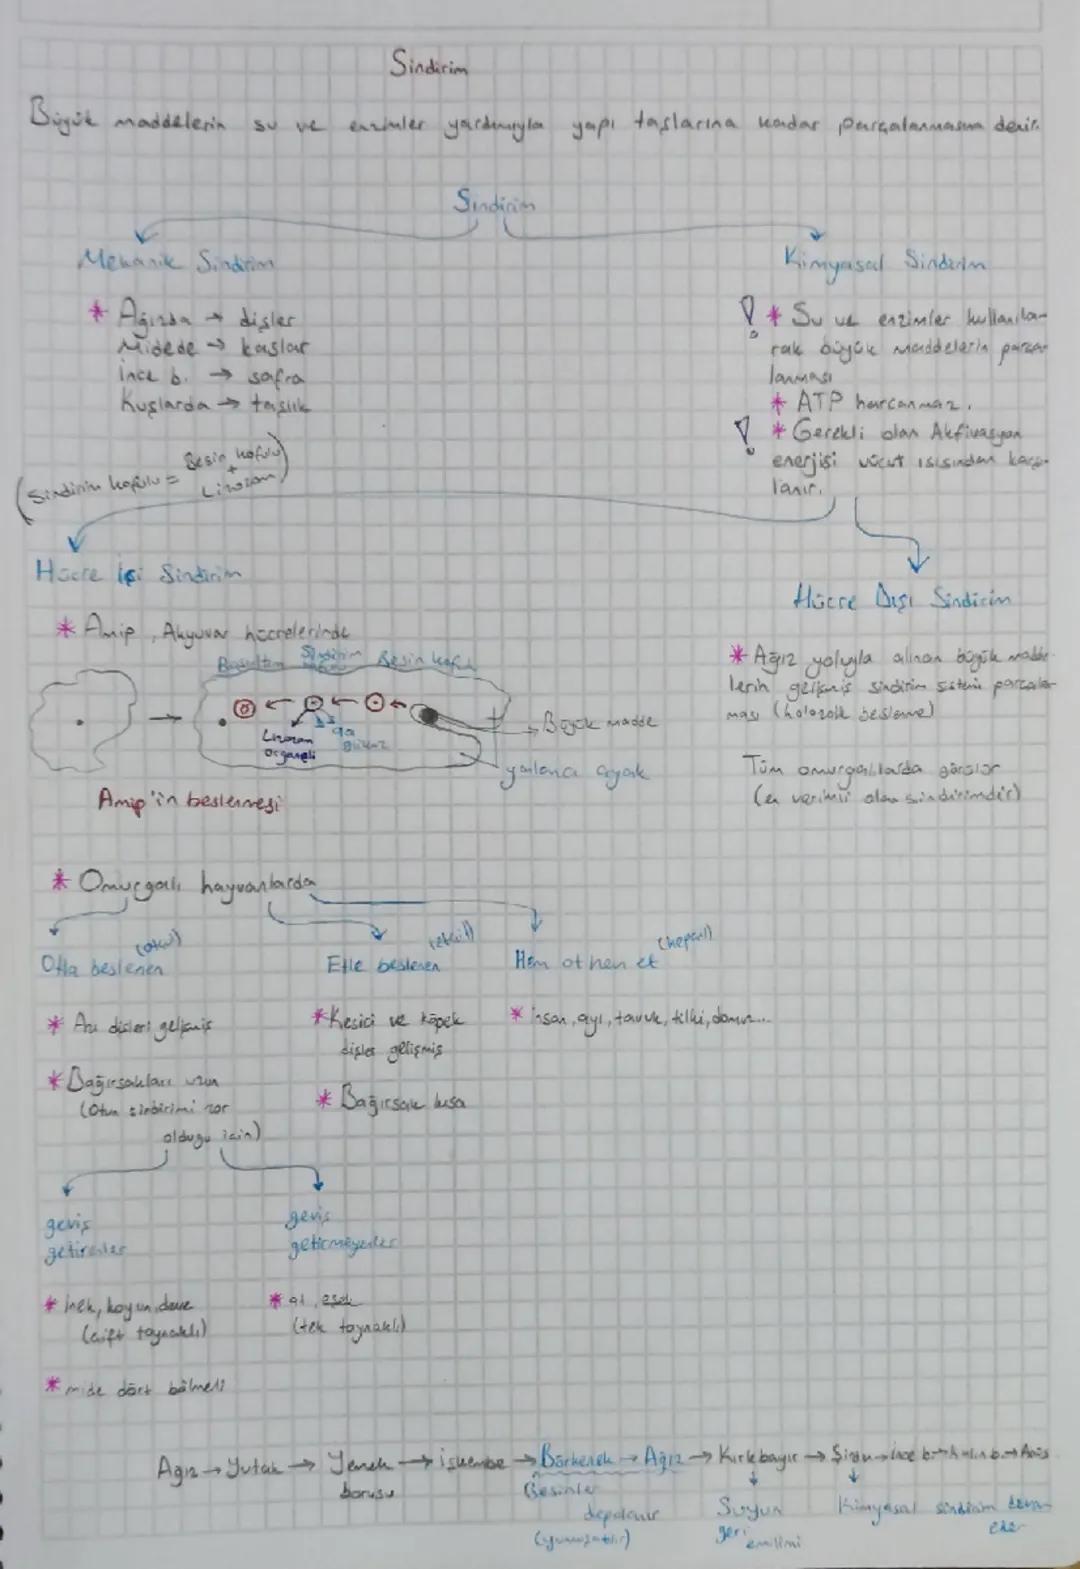 Sindirim
Büyük maddelerin su ve enzimler yardımıyla yapı taşlarına kadar parçalanmasına denir.
Sindirim
Mekanik Sindirim
* Ağızda → dişler
Midede → kaslar
İnce b. → safra
Kuşlarda → taşlık
(Sindirim kofulu = Besin kofulu + Lizozom)
Kimyasal Sindirim
! * Su ve enzimler kullanıla-
rak büyük maddelerin parça-
lanması
* ATP harcanmaz.
! * Gerekli olan Aktivasyon
enerjisi vücut ısısından karşı-
lanır.
Hücre İçi Sindirim
* Amip, Akyuvar hücrelerinde
Boşaltım Sindirim Besin kofulu
Lizozom
organeli
Büyük madde
yalancı ayak
Amip'in beslenmesi
Hücre Dışı Sindirim
* Ağız yoluyla alınan büyük madde-
lerin gelişmiş sindirim sistemi parçalan-
ması (holozoik beslenme)
Tüm omurgalılarda görülür
(en verimli olan sindirimdir)
* Omurgalı hayvanlarda
Otla beslenen (otçul)
* Azı dişleri gelişmiş
* Bağırsakları uzun
(Otun sindirimi zor
olduğu için)
Etle beslenen (etçil)
* Kesici ve köpek
dişler gelişmiş
* Bağırsak kısa
Hem ot hem et (hepçil)
* insan, ayı, tavuk, tilki, domuz...
geviş
getirenler
* inek, koyun, deve
(çift toynaklı)
* mide dört bölmeli
geviş
getirmeyenler
* at, eşek
(tek toynaklı)
Ağız → Yutak → Yemek → işkembe → Börkenek → Ağız → Kırkbayır → Şirden → ince b. → kalın b. → Anüs
borusu
Besinler
depolanır
(yumuşatılır)
Suyun
geri emilimi
Kimyasal sindirim devam
eder